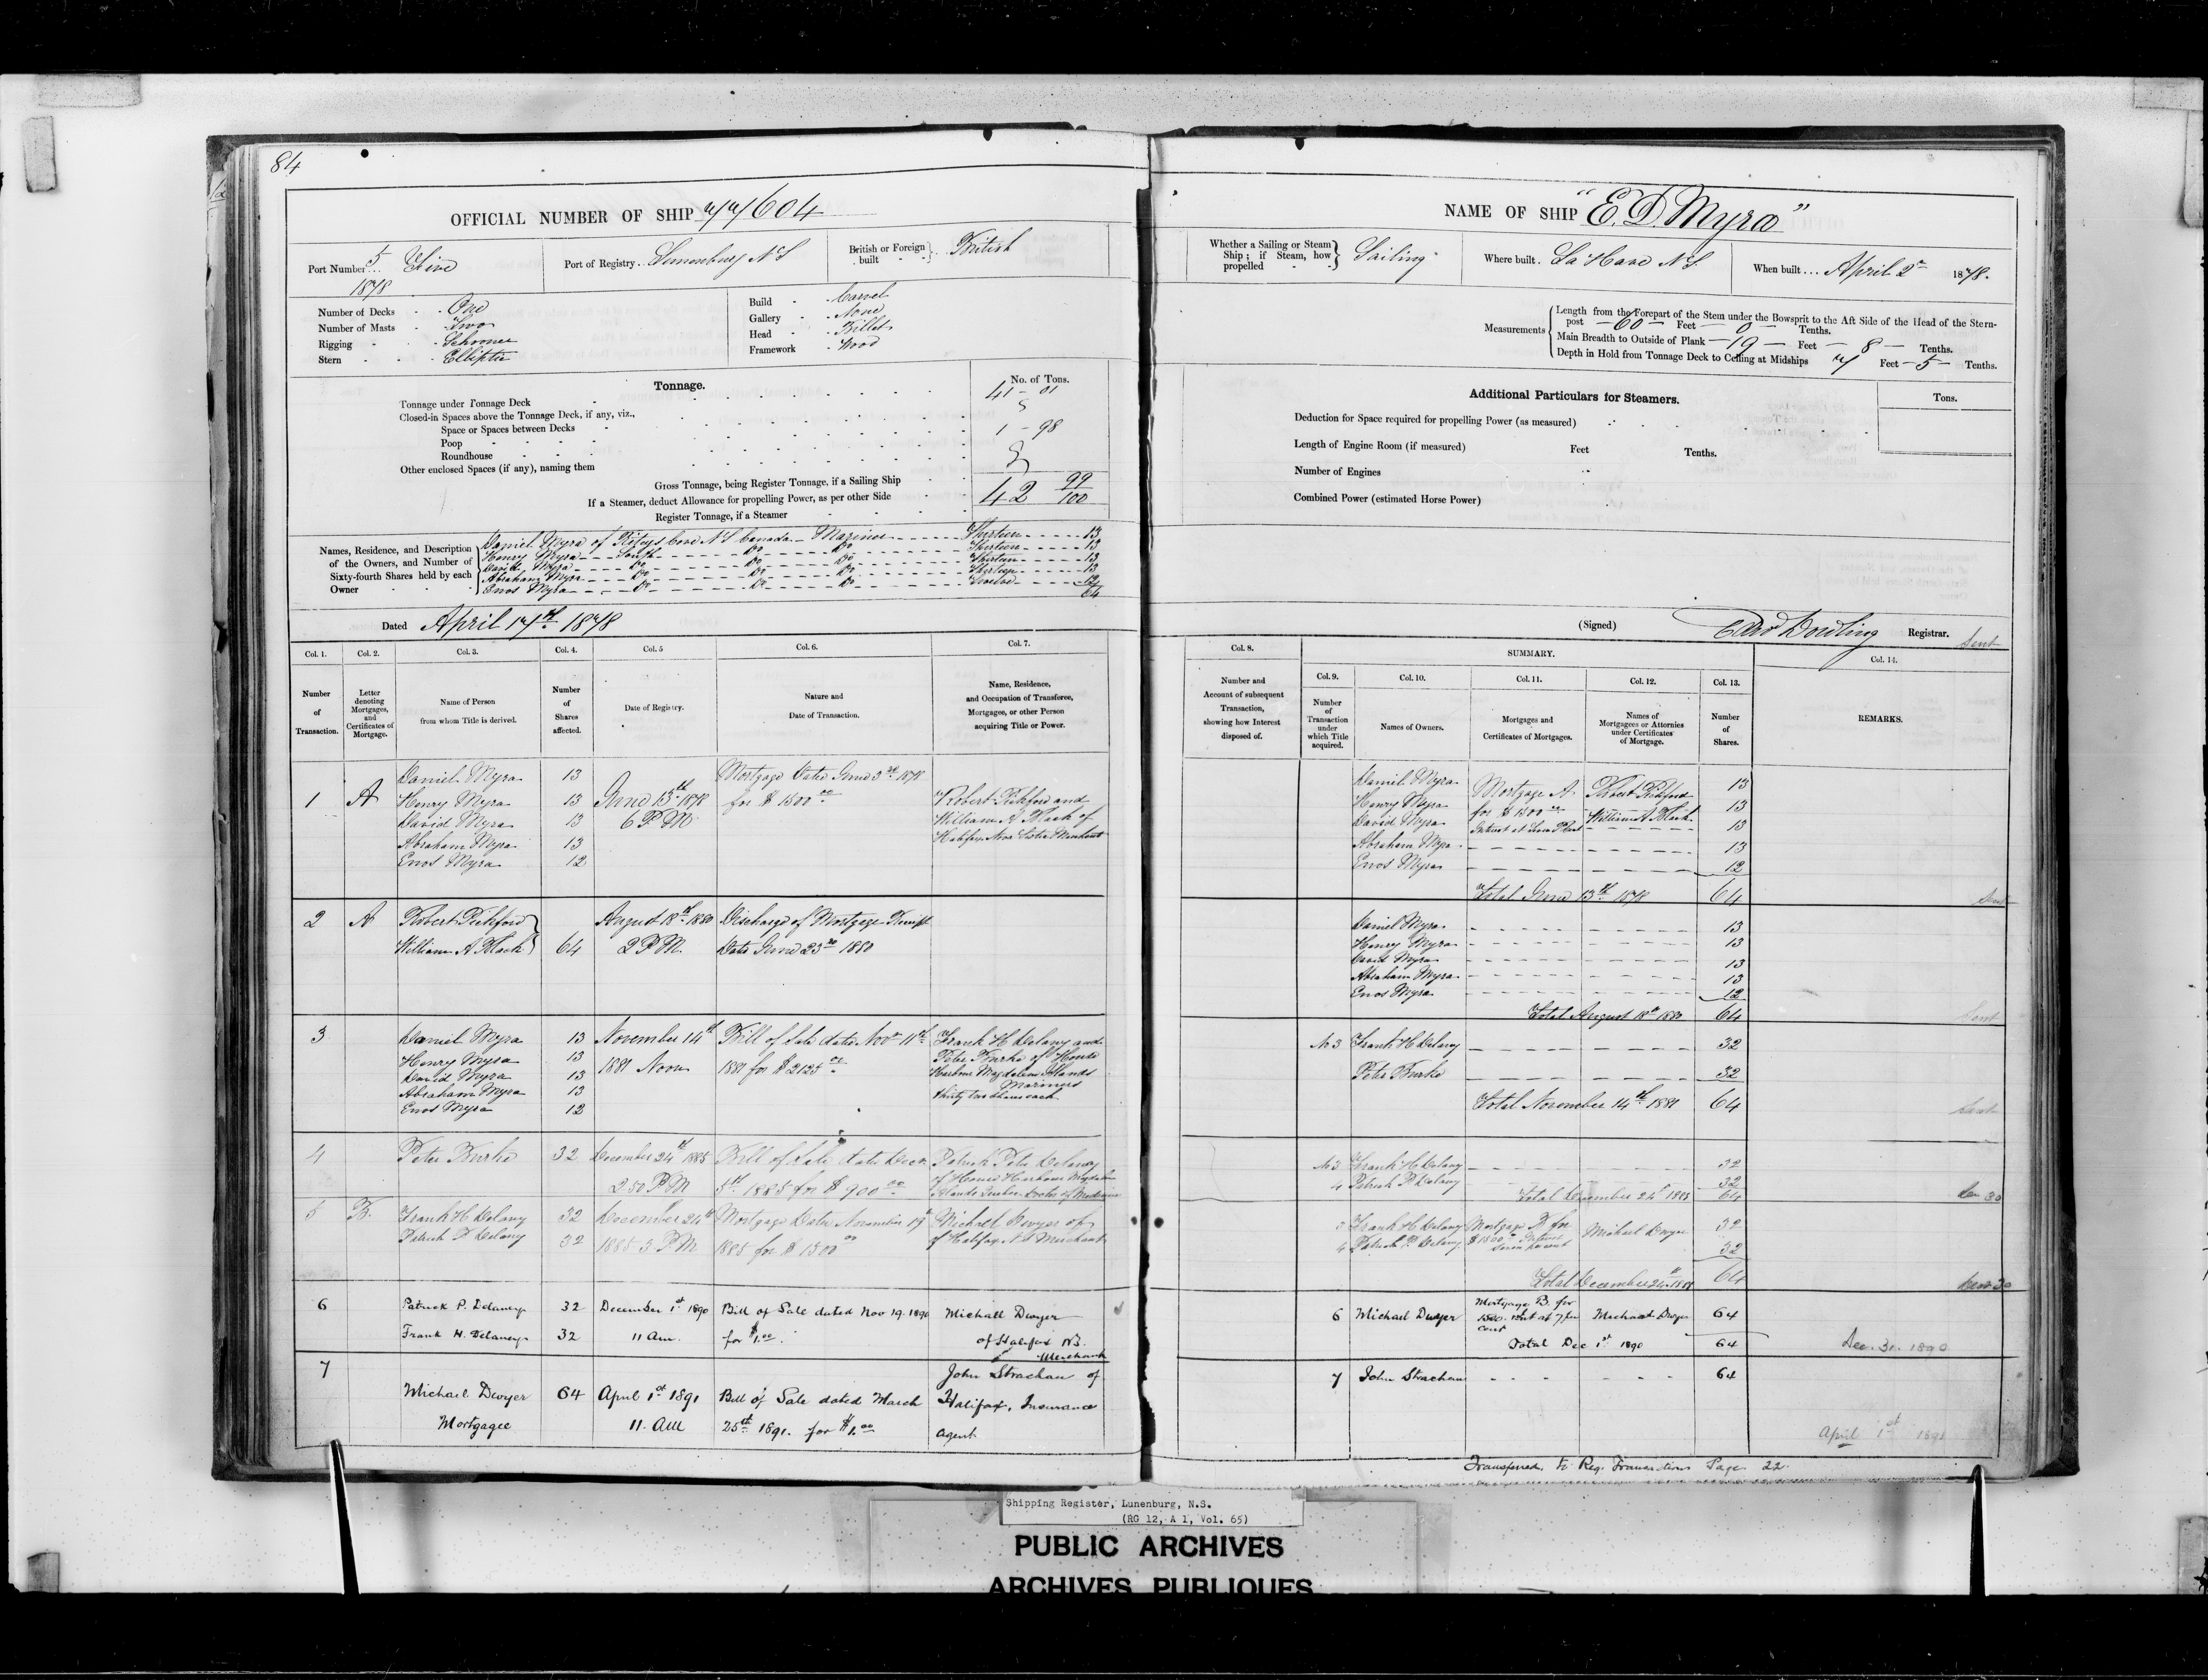 84
OFFICIAL NUMBER OF SHIP 77604
Port Number... 5 Five
1878
Port of Registry.. Lunenburg N S
British or Foreign built British
Number of Decks One
Number of Masts Two
Rigging Schooner
Stern Elliptic
Build Carvel
Gallery None
Head Billet
Framework Wood
Tonnage.
No. of Tons.
Tonnage under Tonnage Deck 41 - 01
Closed-in Spaces above the Tonnage Deck, if any, viz.,
Space or Spaces between Decks
Poop 1 - 98
Roundhouse
Other enclosed Spaces (if any), naming them
Gross Tonnage, being Register Tonnage, if a Sailing Ship
If a Steamer, deduct Allowance for propelling Power, as per other Side
42 99/100
Register Tonnage, if a Steamer
Names, Residence, and Description of the Owners, and Number of Sixty-fourth Shares held by each Owner
Daniel Myra of Cove N S Canada Mariner Thirteen 13
Henry Myra South Do Do Thirteen 13
David Myra Do Do Do Thirteen 13
Abraham Myra Do Do Do Thirteen 13
Enos Myra Do Do Do Twelve 12
64
Dated April 17th 1878
Col. 1. Col. 2. Col. 3. Col. 4. Col. 5 Col. 6. Col. 7.
Number of Transaction.
Letter denoting Mortgages, and Certificates of Mortgage.
Name of Person from whom Title is derived.
Number of Shares affected.
Date of Registry.
Nature and Date of Transaction.
Name, Residence, and Occupation of Transferee, Mortgagee, or other Person acquiring Title or Power.
1 A
Daniel Myra 13
Henry Myra 13
David Myra 13
Abraham Myra 13
Enos Myra 12
June 13th 1878
6 P M
Mortgage Dated June 3rd 1878
for $1500 00
Robert Pickford and
William A Black of
Halifax Nova Scotia Merchants
2 A
Robert Pickford
William A Black 64
August 18th 1880
2 P M
Discharge of Mortgage Receipt
Dated June 23rd 1880
3
Daniel Myra 13
Henry Myra 13
David Myra 13
Abraham Myra 13
Enos Myra 12
November 14th
1881 Noon
Bill of Sale dated Nov 11th
1881 for $2125 00
Frank H Delany and
Peter Burke of House
Harbour Magdalen Islands
Mariners
thirty two shares each
4
Peter Burke 32
December 24th 1885
2 50 P M
Bill of Sale dated Decr
5th 1885 for $900 00
Patrick Peter Delaney
of House Harbour Magdalen
Islands Quebec Doctor of Medicine
5 B.
Frank H Delany 32
Patrick P Delany 32
December 24th
1885 3 P M
Mortgage Dated November 19th
1885 for $1500 00
Michael Dwyer of
of Halifax N S Merchant
6
Patrick P. Delaney 32
Frank H. Delaney 32
December 1st 1890
11 Am.
Bill of Sale dated Nov 19. 1890
for $1.00
Michall Dwyer
of Halifax NS.
Merchant
7
Michael Dwyer 64
Mortgagee
April 1st 1891
11. AM
Bill of Sale dated March
25th 1891. for $1.00
John Strachan of
Halifax, Insurance
agent
NAME OF SHIP "E. D. Myra"
Whether a Sailing or Steam Ship; if Steam, how propelled Sailing
Where built. La Have N S.
When built... April 2nd 1878.
Measurements
Length from the Forepart of the Stem under the Bowsprit to the Aft Side of the Head of the Stern-
post 60 Feet 0 Tenths.
Main Breadth to Outside of Plank 19 Feet 8 Tenths.
Depth in Hold from Tonnage Deck to Ceiling at Midships 7 Feet 5 Tenths.
Additional Particulars for Steamers.
Tons.
Deduction for Space required for propelling Power (as measured)
Length of Engine Room (if measured) Feet Tenths.
Number of Engines
Combined Power (estimated Horse Power)
(Signed) Dowling Registrar.
Sent
Col. 8. SUMMARY. Col. 14.
Col. 9. Col. 10. Col. 11. Col. 12. Col. 13.
Number and Account of subsequent Transaction, showing how Interest disposed of.
Number of Transaction under which Title acquired.
Names of Owners.
Mortgages and Certificates of Mortgages.
Names of Mortgagees or Attornies under Certificates of Mortgage.
Number of Shares.
REMARKS.
Daniel Myra 13
Henry Myra 13
David Myra 13
Abraham Myra 13
Enos Myra 12
Mortgage A
for $1500 00
Robert Pickford
William A Black
Total June 13th 1878 64
Sent
Daniel Myra 13
Henry Myra 13
David Myra 13
Abraham Myra 13
Enos Myra 12
Total August 18th 1880 64
Sent
No 3 Frank H Delany 32
Peter Burke 32
Total November 14th 1881 64
Sent
No 3 Frank H Delany 32
4 Patrick P Delany 32
Total December 24th 1885 64
Dec 30
3 Frank H Delany 32
4 Patrick P. Delany 32
Mortgage B for
$1500 Interest
Seven percent
Michael Dwyer
Total December 24th 1885 64
Dec 30
6 Michael Dwyer
Mortgage B for
1500. int at 7 per
cent
Michael Dwyer 64
Total Dec 1st 1890 64
Dec. 31. 1890
7 John Strachan 64
April 1st 1891
Transferred to Reg. Transactions Page 22.
Shipping Register, Lunenburg, N.S.
(RG 12, A 1, Vol. 65)
PUBLIC ARCHIVES
ARCHIVES PUBLIQUES